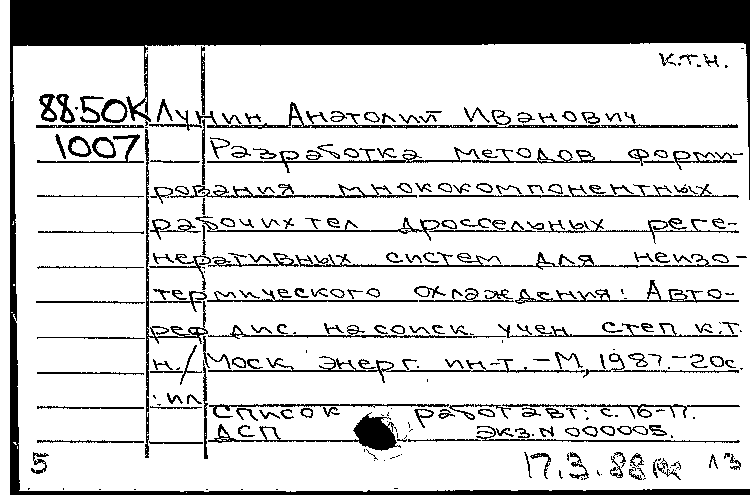 К.Т.Н.
88.50К Лунин Анатолий Иванович
1007 Разработка методов форми-
рования мнококомпонентных
рабочих тел дроссельных реге-
неративных систем для неизо-
термического охлаждения: Авто-
реф дис. на соиск. учен степ к.т.
н./Моск. энерг. ин-т. -М, 1987.-20с.
:ил
Список работ авт: с. 16-17.
ДСП Экз. N 000005.
5 17.3.88 13